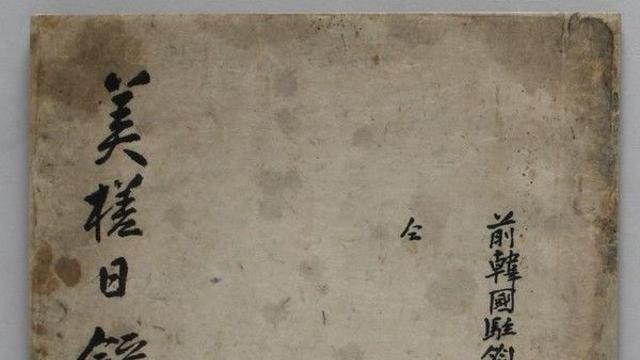 前韓國駐
仝
美槎日錄